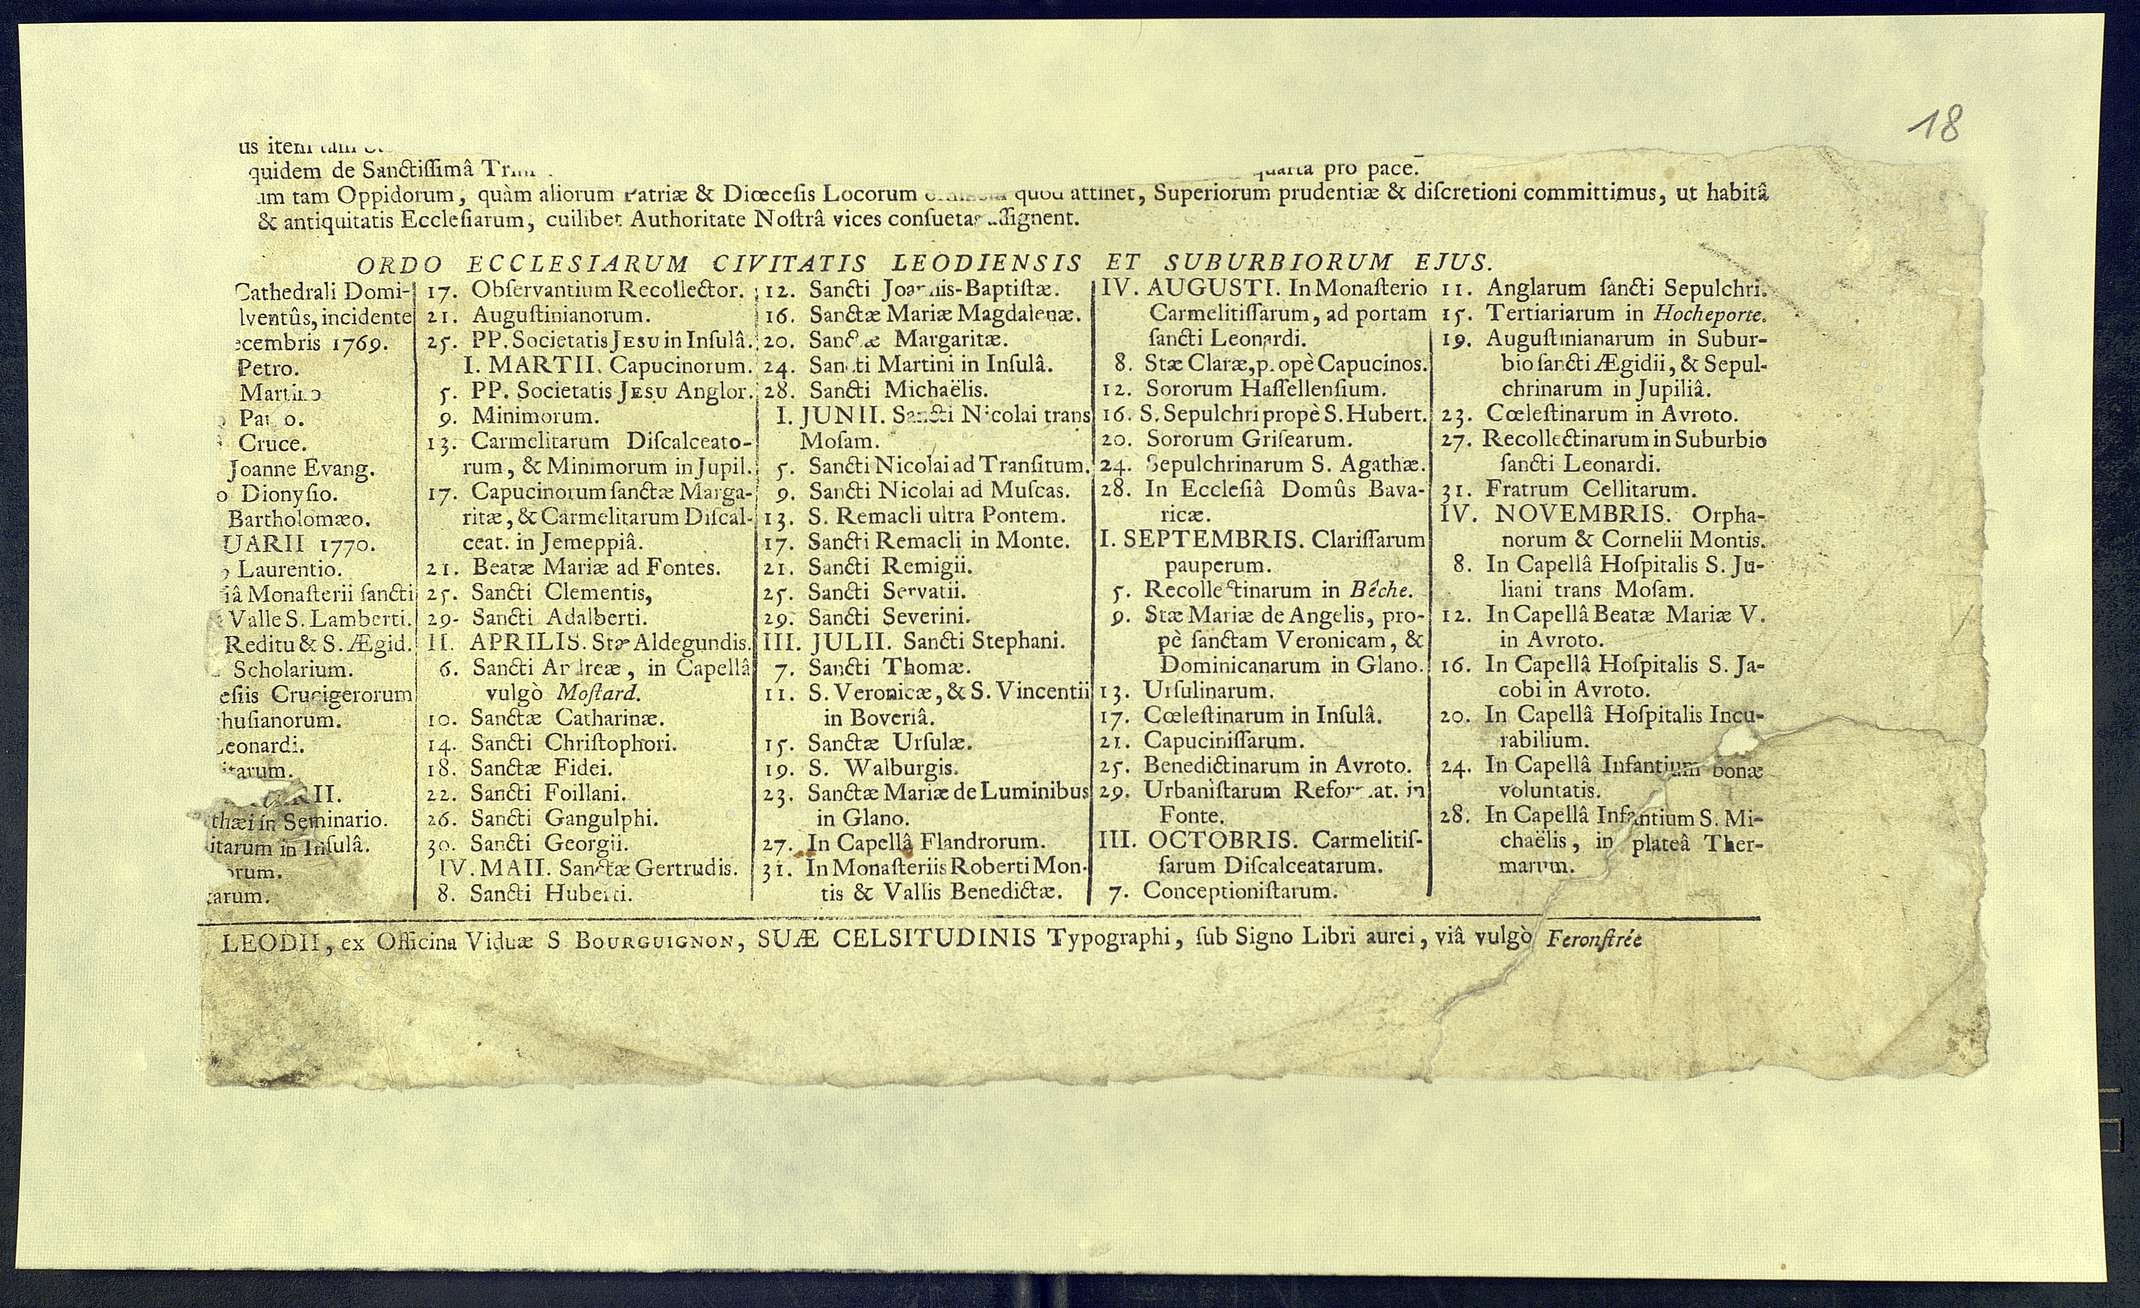 18
us item tam
quidem de Sanctiſſimâ quarta pro pace.
um tam Oppidorum, quàm aliorum Patriæ & Diœceſis Locorum quod attinet, Superiorum prudentiæ & diſcretioni committimus, ut habitâ
& antiquitatis Eccleſiarum, cuilibet Authoritate Noſtrâ vices conſuetas aſſignent.
ORDO ECCLESIARUM CIVITATIS LEODIENSIS ET SUBURBIORUM EJUS.
Cathedrali Domi-
lventûs, incidente
ecembris 1769.
Petro.
Martino
Paulo.
Cruce.
Joanne Evang.
o Dionyſio.
Bartholomæo.
UARII 1770.
o Laurentio.
ſiâ Monaſterii ſancti
Valle S. Lamberti.
Reditu & S. Ægid.
Scholarium.
eſiis Crucigerorum
huſianorum.
Leonardi.
itarum.
RII.
thæi in Seminario.
itarum in Inſulâ.
orum.
tarum.
17. Obſervantium Recollector.
21. Auguſtinianorum.
25. PP. Societatis JESU in Inſulâ.
I. MARTII. Capucinorum.
5. PP. Societatis JESU Anglor.
9. Minimorum.
13. Carmelitarum Diſcalceato-
rum, & Minimorum in Jupil.
17. Capucinorum ſanctæ Marga-
ritæ, & Carmelitarum Diſcal-
ceat. in Jemeppiâ.
21. Beatæ Mariæ ad Fontes.
25. Sancti Clementis,
29. Sancti Adalberti.
II. APRILIS. Stæ Aldegundis.
6. Sancti Andreæ, in Capellâ
vulgò Moſtard.
10. Sanctæ Catharinæ.
14. Sancti Chriſtophori.
18. Sanctæ Fidei.
22. Sancti Foillani.
26. Sancti Gangulphi.
30. Sancti Georgii.
IV. MAII. Sanctæ Gertrudis.
8. Sancti Huberti.
12. Sancti Joannis-Baptiſtæ.
16. Sanctæ Mariæ Magdalenæ.
20. Sanctæ Margaritæ.
24. Sancti Martini in Inſulâ.
28. Sancti Michaëlis.
I. JUNII. Sancti Nicolai trans
Moſam.
5. Sancti Nicolai ad Tranſitum.
9. Sancti Nicolai ad Muſcas.
13. S. Remacli ultra Pontem.
17. Sancti Remacli in Monte.
21. Sancti Remigii.
25. Sancti Servatii.
29. Sancti Severini.
III. JULII. Sancti Stephani.
7. Sancti Thomæ.
11. S. Veronicæ, & S. Vincentii
in Boveriâ.
15. Sanctæ Urſulæ.
19. S. Walburgis.
23. Sanctæ Mariæ de Luminibus
in Glano.
27. In Capellâ Flandrorum.
31. In Monaſteriis Roberti Mon-
tis & Vallis Benedictæ.
IV. AUGUSTI. In Monaſterio
Carmelitiſſarum, ad portam
ſancti Leonardi.
8. Stæ Claræ, propè Capucinos.
12. Sororum Haſſellenſium.
16. S. Sepulchri propè S. Hubert.
20. Sororum Griſearum.
24. Sepulchrinarum S. Agathæ.
28. In Eccleſiâ Domûs Bava-
ricæ.
I. SEPTEMBRIS. Clariſſarum
pauperum.
5. Recollectinarum in Bêche.
9. Stæ Mariæ de Angelis, pro-
pè ſanctam Veronicam, &
Dominicanarum in Glano.
13. Urſulinarum.
17. Cœleſtinarum in Inſulâ.
21. Capuciniſſarum.
25. Benedictinarum in Avroto.
29. Urbaniſtarum Reformat. in
Fonte.
III. OCTOBRIS. Carmelitiſ-
ſarum Diſcalceatarum.
7. Conceptioniſtarum.
11. Anglarum ſancti Sepulchri.
15. Tertiariarum in Hocheporte.
19. Auguſtinianarum in Subur-
bio ſancti Ægidii, & Sepul-
chrinarum in Jupiliâ.
23. Cœleſtinarum in Avroto.
27. Recollectinarum in Suburbio
ſancti Leonardi.
31. Fratrum Cellitarum.
IV. NOVEMBRIS. Orpha-
norum & Cornelii Montis.
8. In Capellâ Hoſpitalis S. Ju-
liani trans Moſam.
12. In Capellâ Beatæ Mariæ V.
in Avroto.
16. In Capellâ Hoſpitalis S. Ja-
cobi in Avroto.
20. In Capellâ Hoſpitalis Incu-
rabilium.
24. In Capellâ Infantium bonæ
voluntatis.
28. In Capellâ Infantium S. Mi-
chaëlis, in plateâ Ther-
marum.
LEODII, ex Officina Viduæ S BOURGUIGNON, SUÆ CELSITUDINIS Typographi, ſub Signo Libri aurei, viâ vulgò Feronſtrée